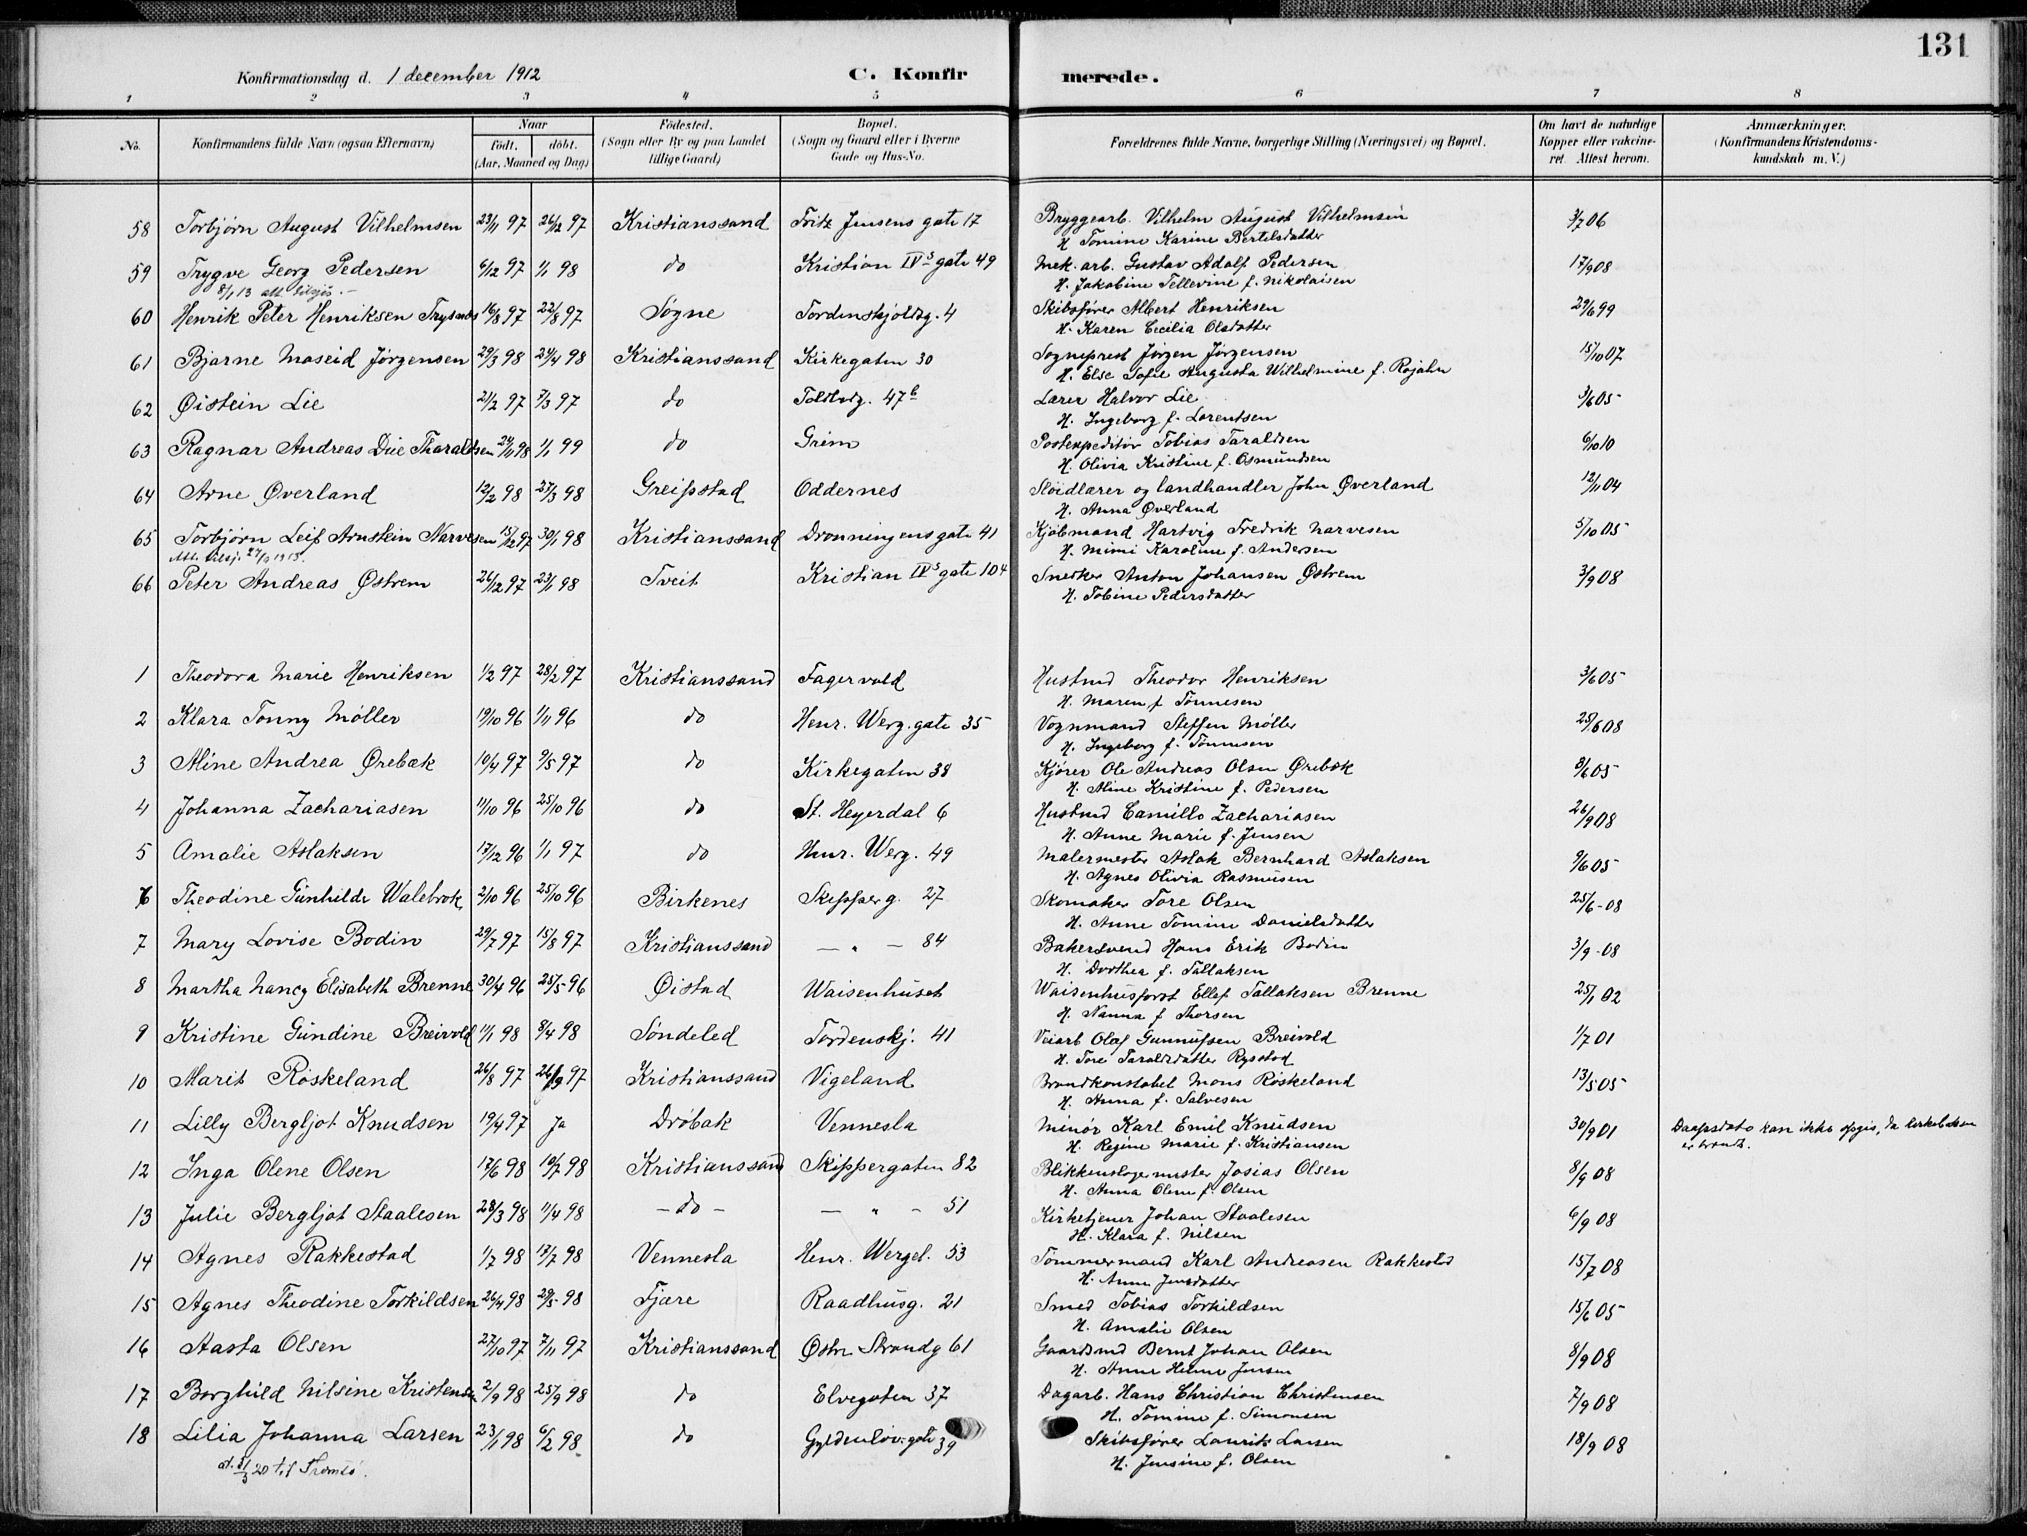 131
Konfirmationsdag d. 1 december 1912 C. Konfirmerede.
1 2 3 4 5 6 7 8
No. Konfirmandens fulde Navn (ogsaa Efternavn) Naar født. døbt. (Aar, Maaned og Dag) Fødested. (Sogn eller By og paa Landet tillige Gaard) Bopæl. (Sogn og Gaard eller i Byerne Gade og Hus-No. Forældrenes fulde Navne, borgerlige Stilling (Næringsvei) og Bopæl. Om havt de naturlige Kopper eller vakcineret. Attest herom. Anmærkninger. (Konfirmandens Kristendomskundskab m. V.)
58 Torbjørn August Vilhelmsen 23/11 97 26/12 97 Kristianssand Fritz Jensens gate 17 Bryggearb. Vilhelm August Vilhelmsen 3/7 06
H. Tomine Karine Bertelsdatter
59 Trygve Georg Pedersen 6/12 97 1/1 98 do Kristian IVs gate 49 Mek. arb. Gustav Adolf Pedersen 17/9 08
8/1 13 att. tilsjøs. - H. Jakobine Tellevine f. Nikolaisen
60 Henrik Peter Henriksen Trysnes 16/8 97 22/8 97 Søgne Tordenskjoldsg. 4 Skibsfører Albert Henriksen 29/6 99
H. Karen Cecilia Olsdatter
61 Bjarne Moseid Jørgensen 29/3 98 24/4 98 Kristianssand Kirkegaten 30 Sogneprest Jørgen Jørgensen 15/10 07
H. Else Sofie Augusta Wilhelmine f. Rojahn
62 Øistein Lie 21/2 97 7/3 97 do Toldbodg. 47b Lærer Halvor Lie 3/6 05
H. Ingeborg f. Lorentsen
63 Ragnar Andreas Due Tharaldsen 24/11 98 1/1 99 do Grim Postexpeditør Tobias Taraldsen 6/10 10
H. Olivia Kristine f. Osmundsen
64 Arne Øverland 12/2 98 27/3 98 Greipstad Oddernes Sløidlærer og landhandler John Øverland 12/11 04
H. Anna Øverland
65 Torbjørn Leif Arnstein Narvesen 15/12 97 30/1 98 Kristianssand Dronningensgate 41 Kjøbmand Hartvig Fredrik Narvesen 5/10 05
Att. tilsj. 1915. H. Mimi Karoline f. Andersen
66 Peter Andreas Østrem 26/12 97 23/1 98 Tveit Kristian IVs gate 104 Snedker Anton Johansen Østrem 3/9 08
H. Tobine Pedersdatter
1 Theodora Marie Henriksen 1/2 97 28/2 97 Kristianssand Fagervold Husmd Theodor Henriksen 3/6 05
H. Maren f Tønnesen
2 Klara Tonny Møller 19/10 96 1/11 96 do Henr. Werg. gate 35 Vognmand Steffen Møller 25/6 08
H. Ingeborg f. Tønnesen
3 Aline Andrea Ørebæk 10/4 97 9/5 97 do Kirkegaten 38 Kjører Ole Andreas Olsen Ørebæk 8/6 05
H. Aline Kristine f. Pedersen
4 Johanna Zachariasen 11/10 96 25/10 96 do St. Heyerdal 6 Husmd Camillo Zachariasen 26/9 08
H. Anne Marie f. Jensen
5 Amalie Aslaksen 17/12 96 1/1 97 do Henr. Werg. 49 Malermester Aslak Bernhard Aslaksen 9/6 05
H. Agnes Olivia Rasmusen
6 Theodine Gunhilde Walebrok 2/10 96 25/10 96 Birkenes Skipperg. 27 Skomaker Tore Olsen 25/6-08
H. Anne Tomine Danielsdatter
7 Mary Lovise Bodin 29/7 97 15/8 97 Kristianssand — " — 84 Bakersvend Hans Erik Bodin 3/9-08
H. Dorthea f. Tallaksen
8 Martha Nancy Elisabeth Brenne 30/4 96 25/5 96 Øistad Waisenhuset Waisenhusforst Ellef Tallaksen Brenne 25/1 02
H. Nanna f Thorsen
9 Kristine Gundine Breivold 11/1 98 8/4 98 Søndeled Tordenskj. 41 Veiarb Olaf Gunnufsen Breivold 1/7 01
H. Tore Taraldsdatter Rysstad
10 Marit Røskeland 26/8 97 26/9 97 Kristianssand Vigeland Brandkonstabel Mons Røskeland 13/5 05
H. Anna f. Salvesen
11 Lilly Bergljot Knudsen 19/4 97 Ja Drøbak Vennesla Minør Karl Emil Knudsen 30/9 01 Daapsdato kan ikke opgis, da kirkeboken
H. Regine Marie f. Kristiansen er brændt.
12 Inga Olene Olsen 17/6 98 10/7 98 Kristianssand Skippergaten 82 Blikkenslagermester Josias Olsen 8/9 08
H. Anna Olene f. Olsen
13 Julie Bergljot Staalesen 28/3 98 11/4 98 - do - — " - 51 Kirketjener Johan Staalesen 6/9 08
H. Klara f. Nilsen
14 Agnes Rakkestad 1/7 98 17/7 98 Vennesla Henr. Wergel. 53 Tømmermand Karl Andreasen Rakkestad 15/7 08
H. Anne Jensdatter
15 Agnes Theodine Torkildsen 26/4 98 29/5 98 Fjære Raadhusg. 21 Smed Tobias Torkildsen 15/6 05
H. Amalie Olsen
16 Aasta Olsen 27/10 97 7/11 97 Kristianssand Østre Strandg 61 Gaardsmd Bernt Johan Olsen 8/9 08
H. Anne Helene Jensen
17 Borghild Nilsine Kristensen 2/9 98 25/9 98 do Elvegaten 37 Dagarb. Hans Christian Christensen 7/9 08
H. Tomine f. Simonsen
18 Lilia Johanna Larsen 23/1 98 6/2 98 do Gyldenløv. gate 39 Skibsfører Laurits Larsen 18/9 08
at. 31/3 20 til Tromsø. H. Jensine f. Olsen